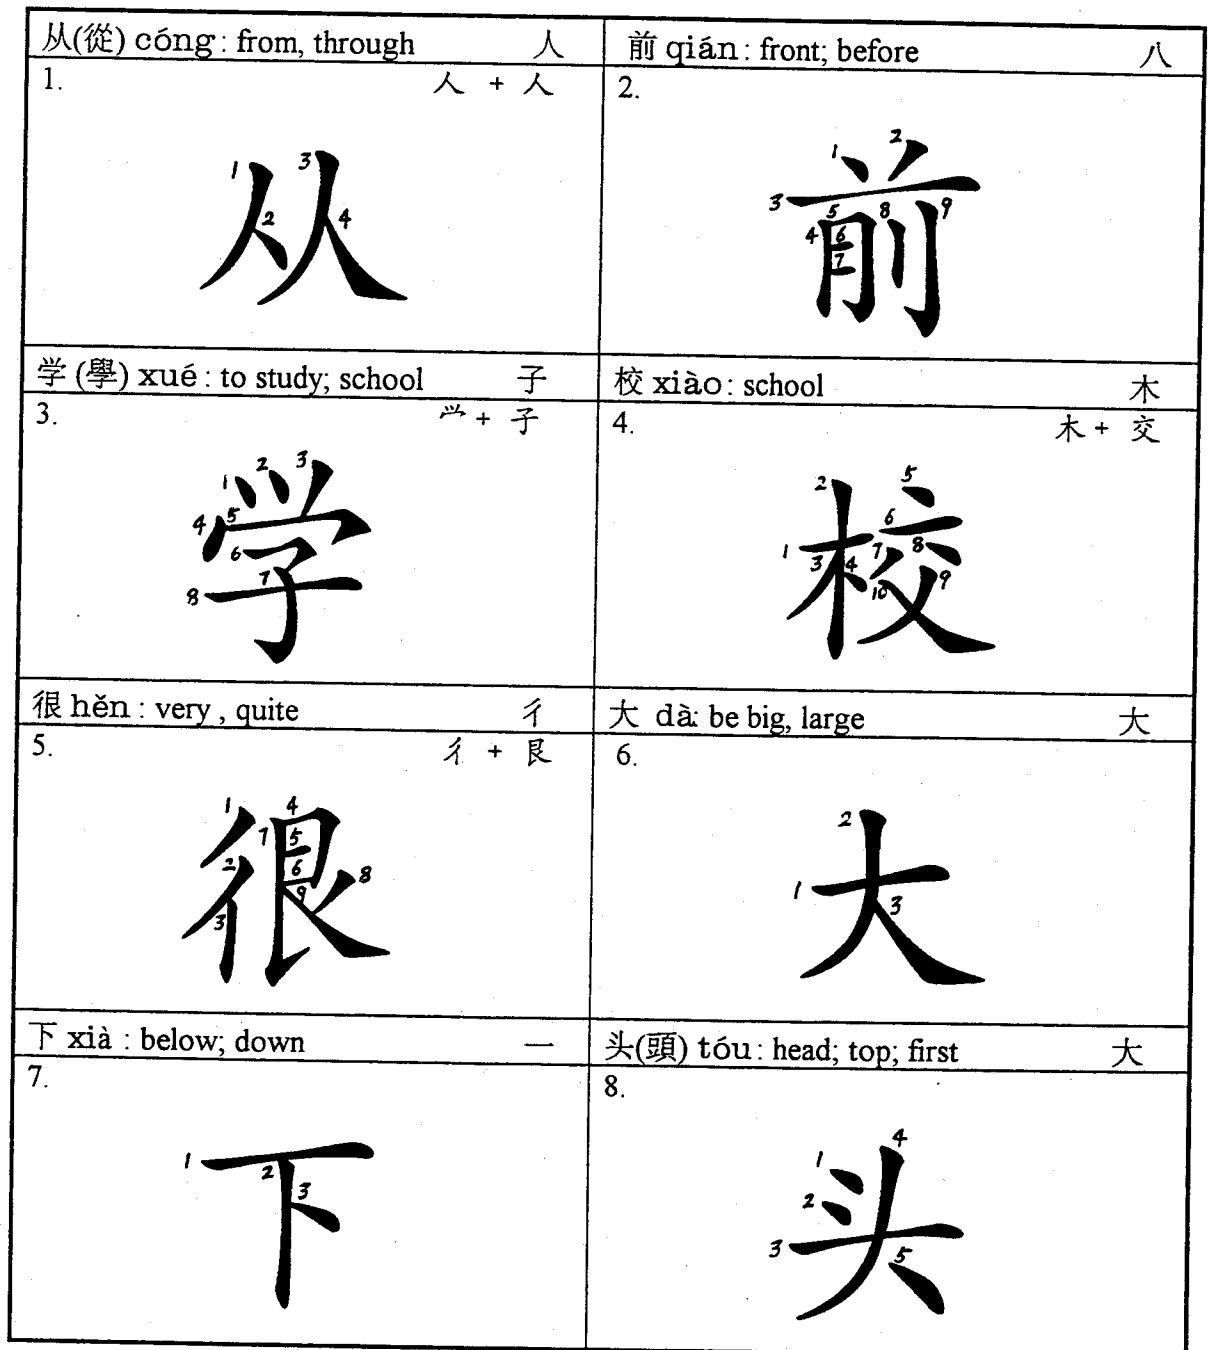 从(從) cóng : from, through 人
1. 人 + 人
1 2 3 4
从
前 qián : front; before 八
2.
1 2 3 4 5 6 7 8 9
前
学 (學) xué : to study; school 子
3. 𭕄 + 子
1 2 3 4 5 6 7 8
学
校 xiào : school 木
4. 木 + 交
1 2 3 4 5 6 7 8 9 10
校
很 hěn : very , quite 彳
5. 彳 + 艮
1 2 3 4 5 6 7 8 9
很
大 dà: be big, large 大
6.
1 2 3
大
下 xià : below; down 一
7.
1 2 3
下
头(頭) tóu : head; top; first 大
8.
1 2 3 4 5
头